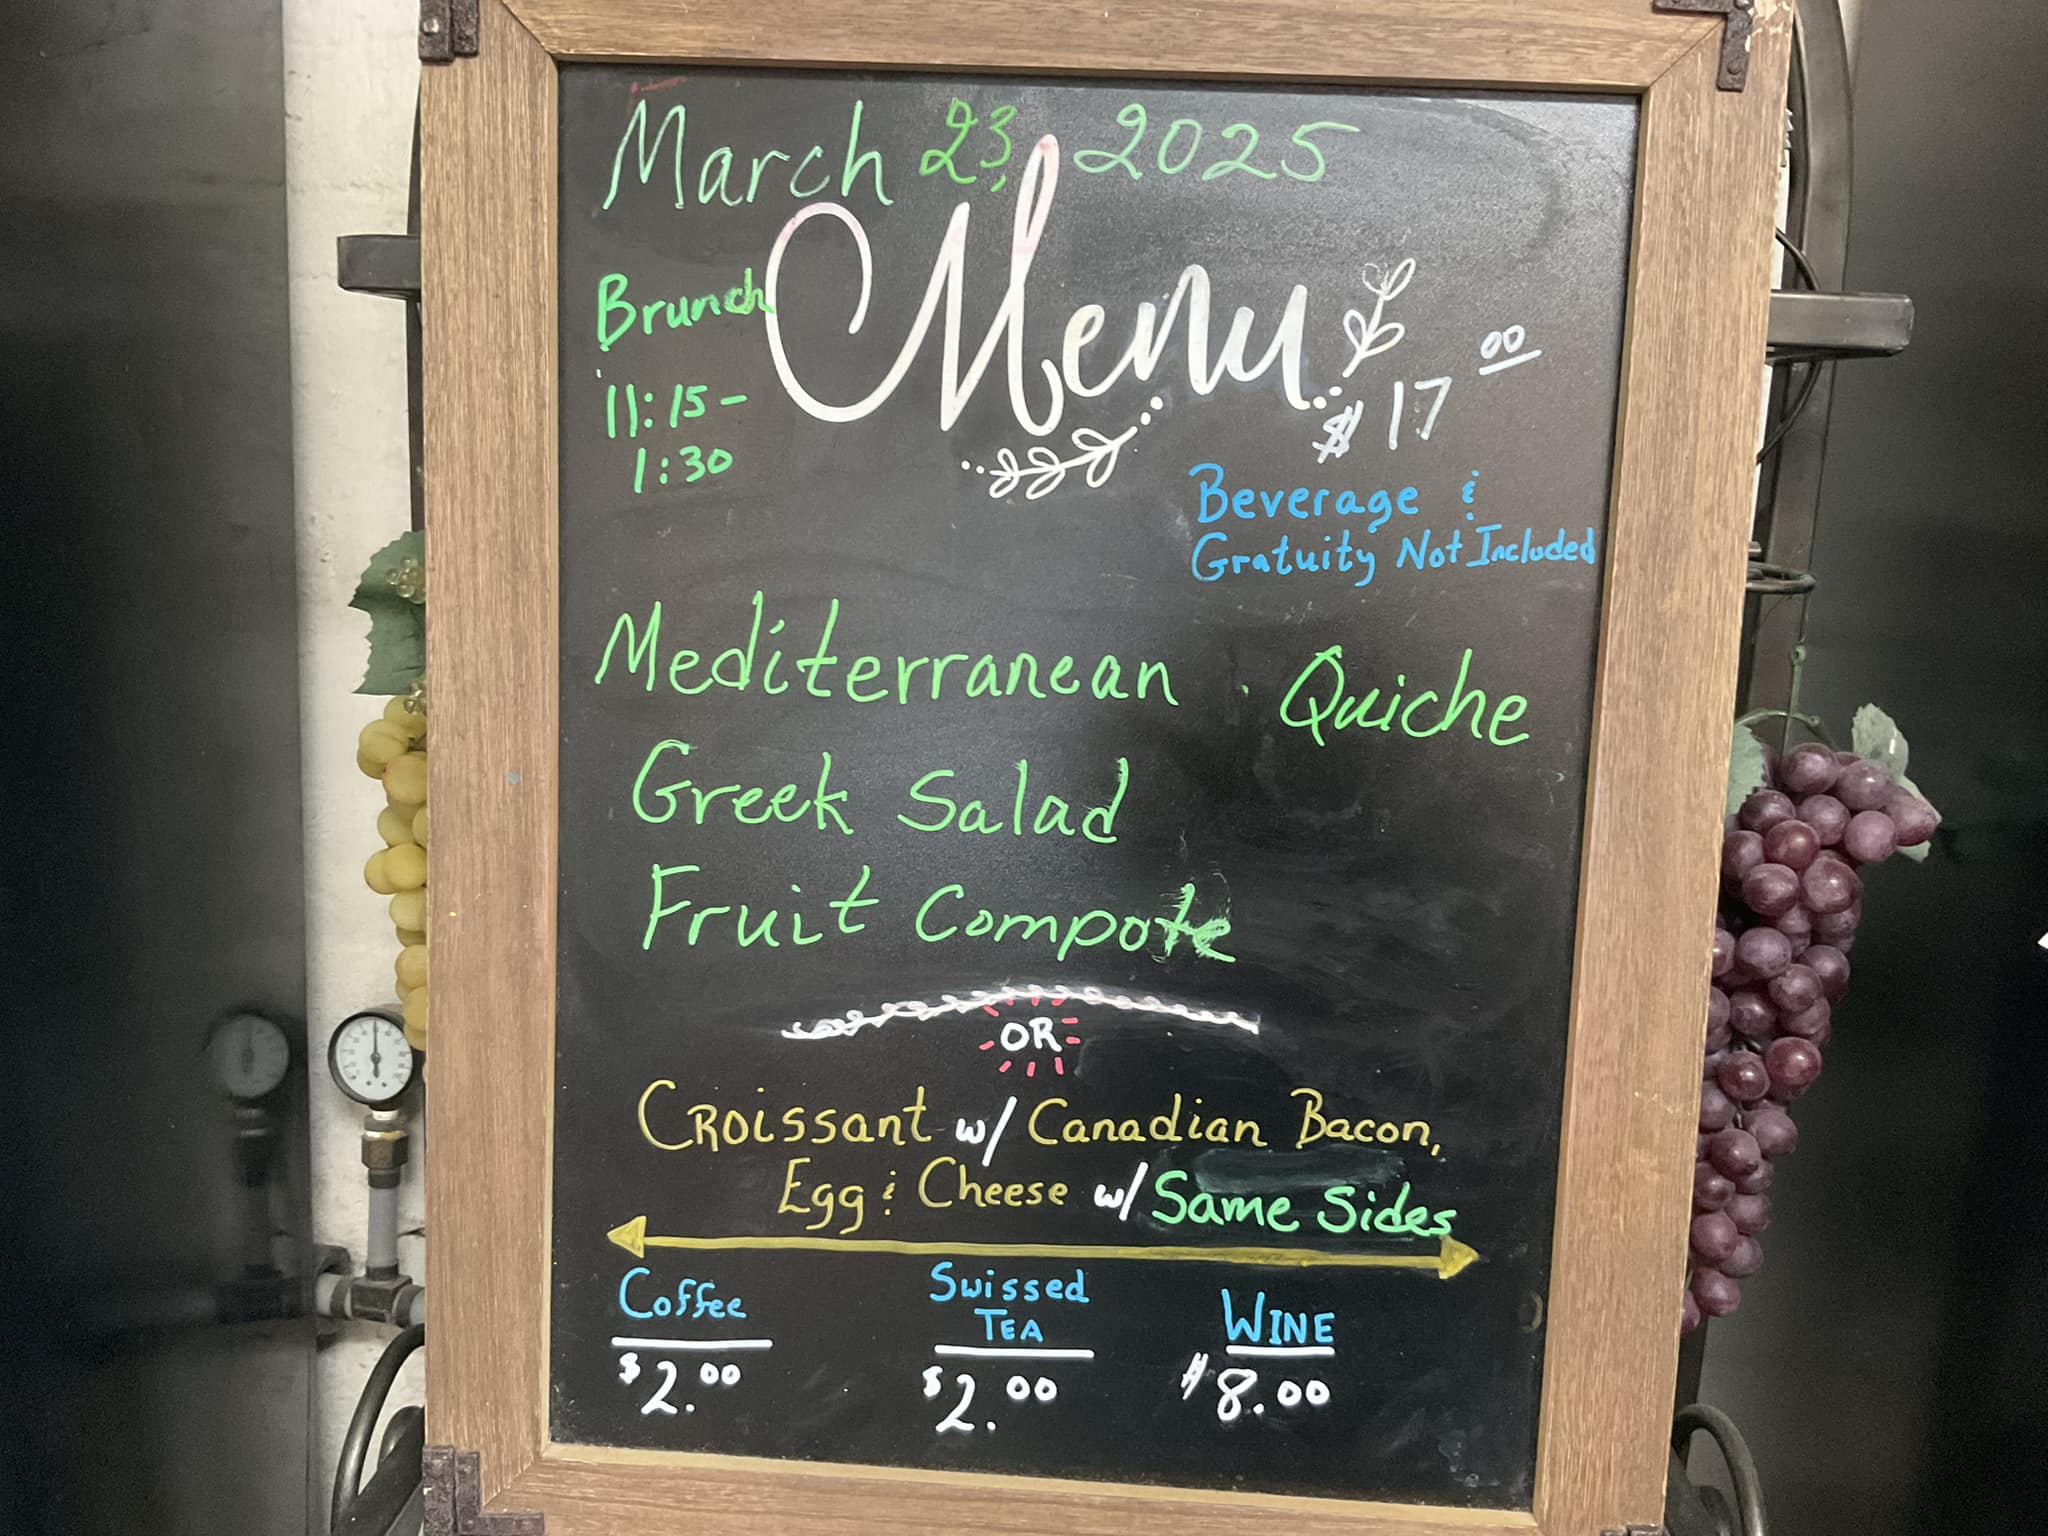 March 23, 2025
Menu
Brunch
11:15-
1:30
$17 00
Beverage &
Gratuity Not Included
Mediterranean Quiche
Greek Salad
Fruit Compote
OR
Croissant w/ Canadian Bacon,
Egg & Cheese w/ Same Sides
Coffee
$2.00
Swissed
TEA
$2.00
WINE
$8.00